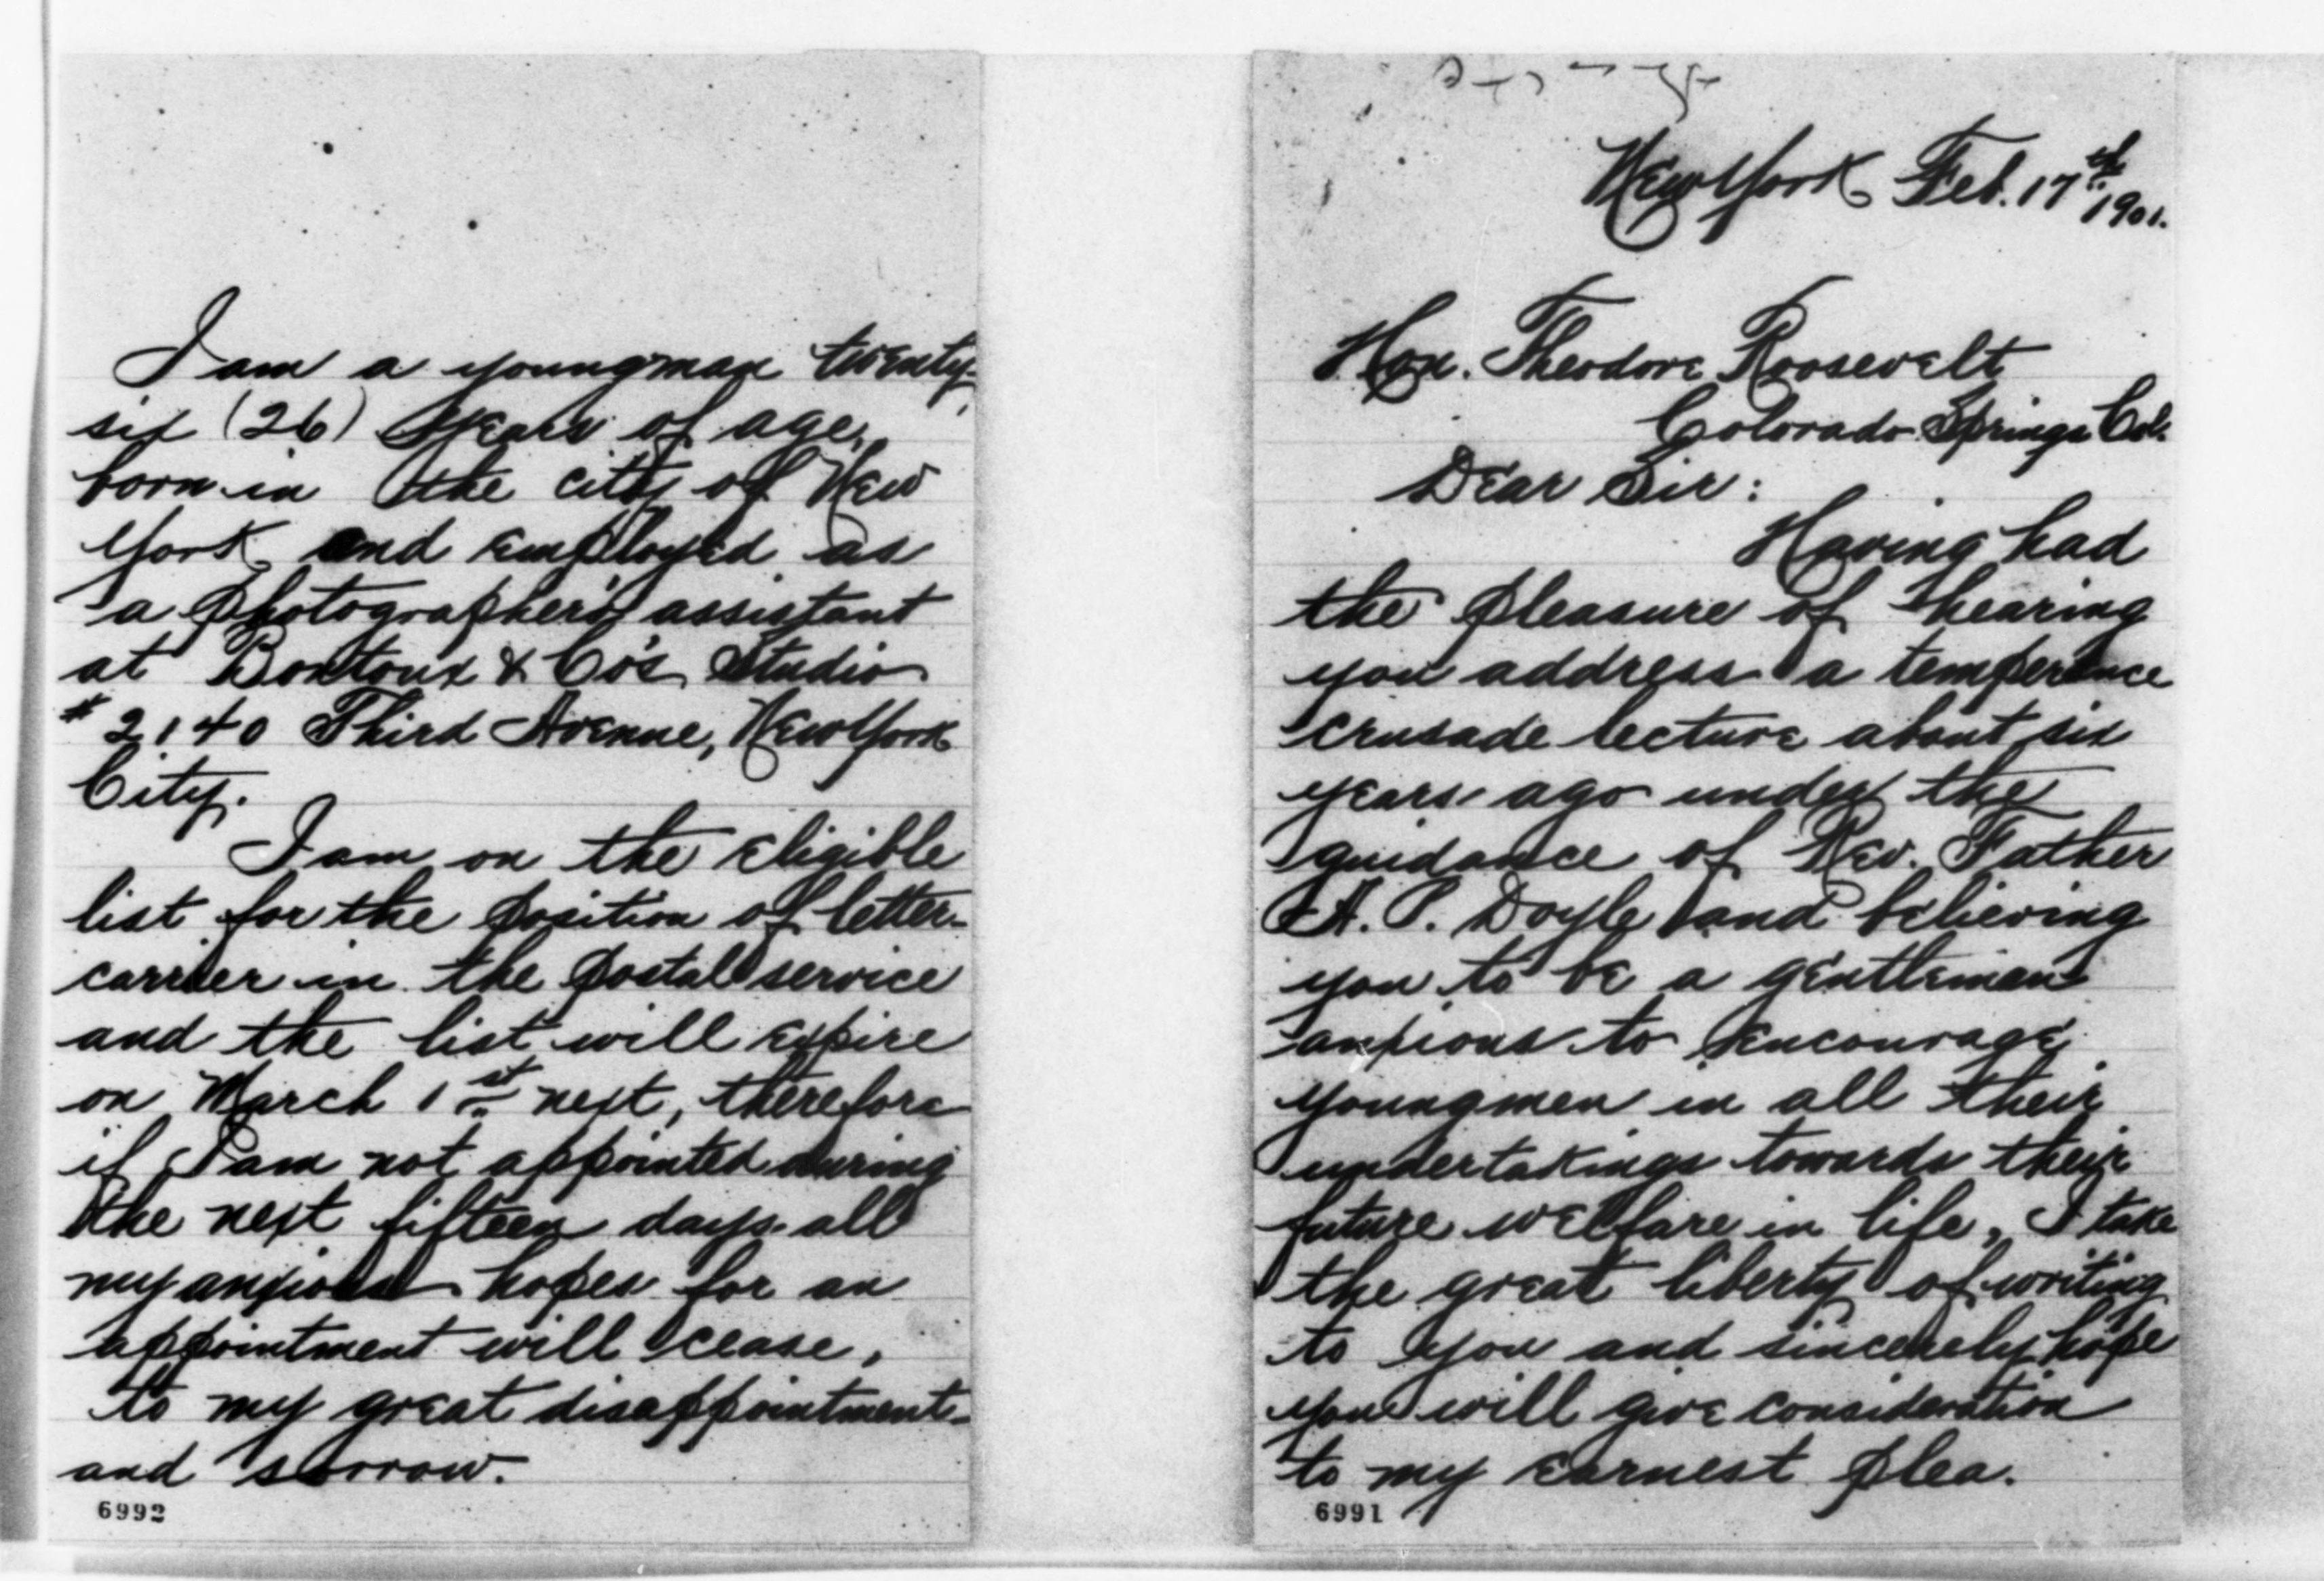 New York Feb. 17th 1901.
Hon. Theodore Roosevelt
Colorado Springs Col.
Dear Sir:
Having had
the pleasure of hearing
you address a temperence
crusade lecture about six
years ago under the
guidance of Rev. Father
A. P. Doyle and believing
you to be a gentleman
anxious to encourage
youngmen in all their
undertakings towards their
future welfare in life, I take
the great liberty of writing
to you and sincerely hope
you will give consideration
to my earnest plea.
6991
I am a youngman twenty-
six (26) years of age,
born in the city of New
York and employed as
a photographer's assistant
at Bontoux & Co's Studio
# 2140 Third Avenue, New York
City.
I am on the eligible
list for the position of letter-
carrier in the postal service
and the list will expire
on March 1st next, therefore
if I am not appointed during
the next fifteen days all
my anxious hopes for an
appointment will cease,
to my great disappointment
and sorrow.
6992